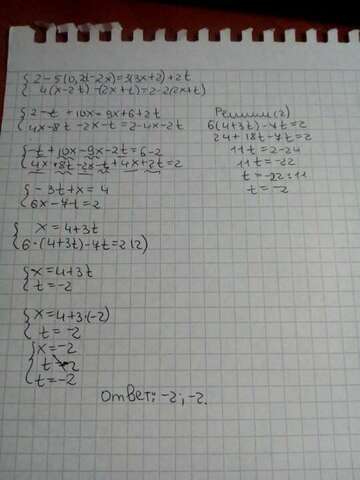 {2-5(0,2t-2x)=3(3x+2)+2t
4(x-2t)-(2x+t)=2-2(2x+t)
{2-t+10x=9x+6+2t
4x-8t-2x-t=2-4x-2t
{-t+10x-9x-2t=6-2
4x-8t-2x-t+4x+2t=2
{-3t+x=4
6x-7t=2
{x=4+3t
6·(4+3t)-7t=2(2)
{x=4+3t
t=-2
{x=4+3·(-2)
t=-2
{x=-2
t=-2
Решим(2)
6(4+3t)-7t=2
24+18t-7t=2
11t=2-24
11t=-22
t=-22:11
t=-2
Ответ: -2; -2.